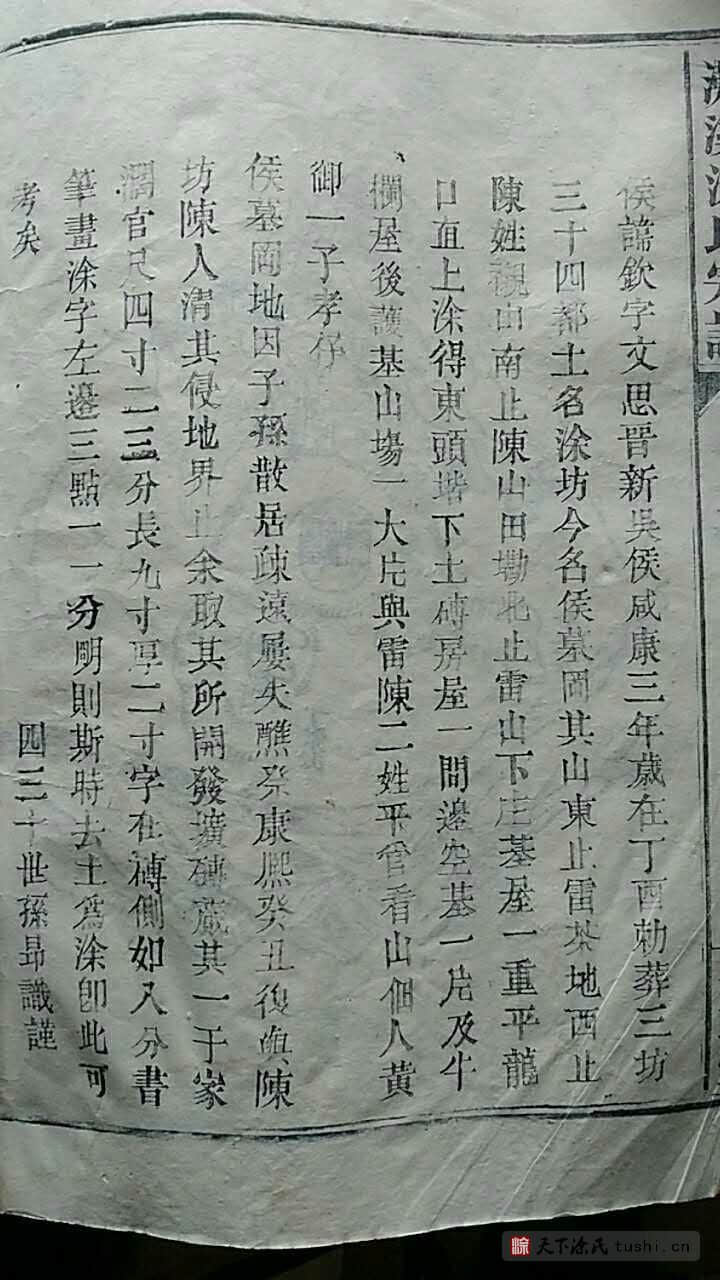 侯諱欽字文思晉新吳侯咸康三年歲在丁酉勅葬三坊
三十四都土名涂坊今名侯墓岡其山東止雷茶地西止
陳姓襯山南止陳山田墈北止雷山下庄基屋一重平龍
口直上涂得東頭堦下土磚房屋一間邊空基一片及牛
欄屋後護基山塲一大片與雷陳二姓平管看山佃人黃
御一子孝仔
侯墓岡地因子孫散居疎遠屢失醮祭康熙癸丑復與陳
坊陳人清其侵地界止余取其所開發壙磚藏其一于家
濶官尺四寸二三分長九寸厚二寸字在磚側如八分書
筆畫涂字左邊三點一一分明則斯時去土為涂即此可
考矣
四三十世孫昂識謹
氏宗譜
天下涂氏 tushi.cn